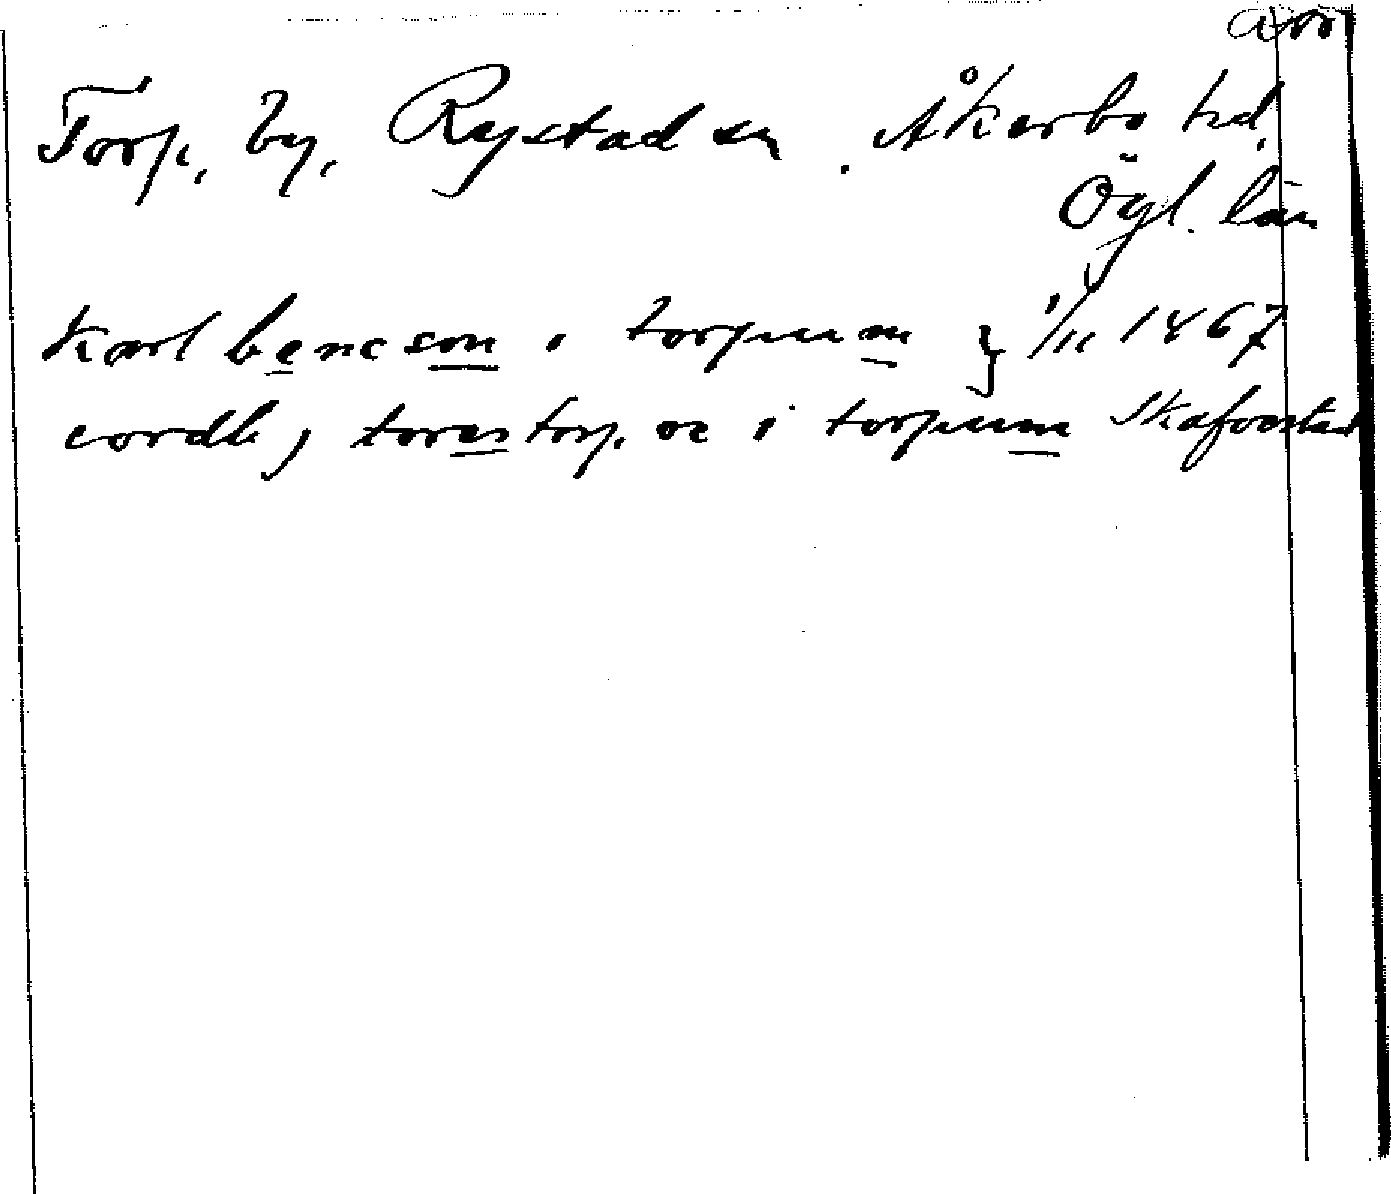 Torp, by, Rystad sn. Åkerbo hd,
Ögl. län
Karl bencson i torpum } 1/11 1467
cordh, torestorp. oc i torpum Skafvestad